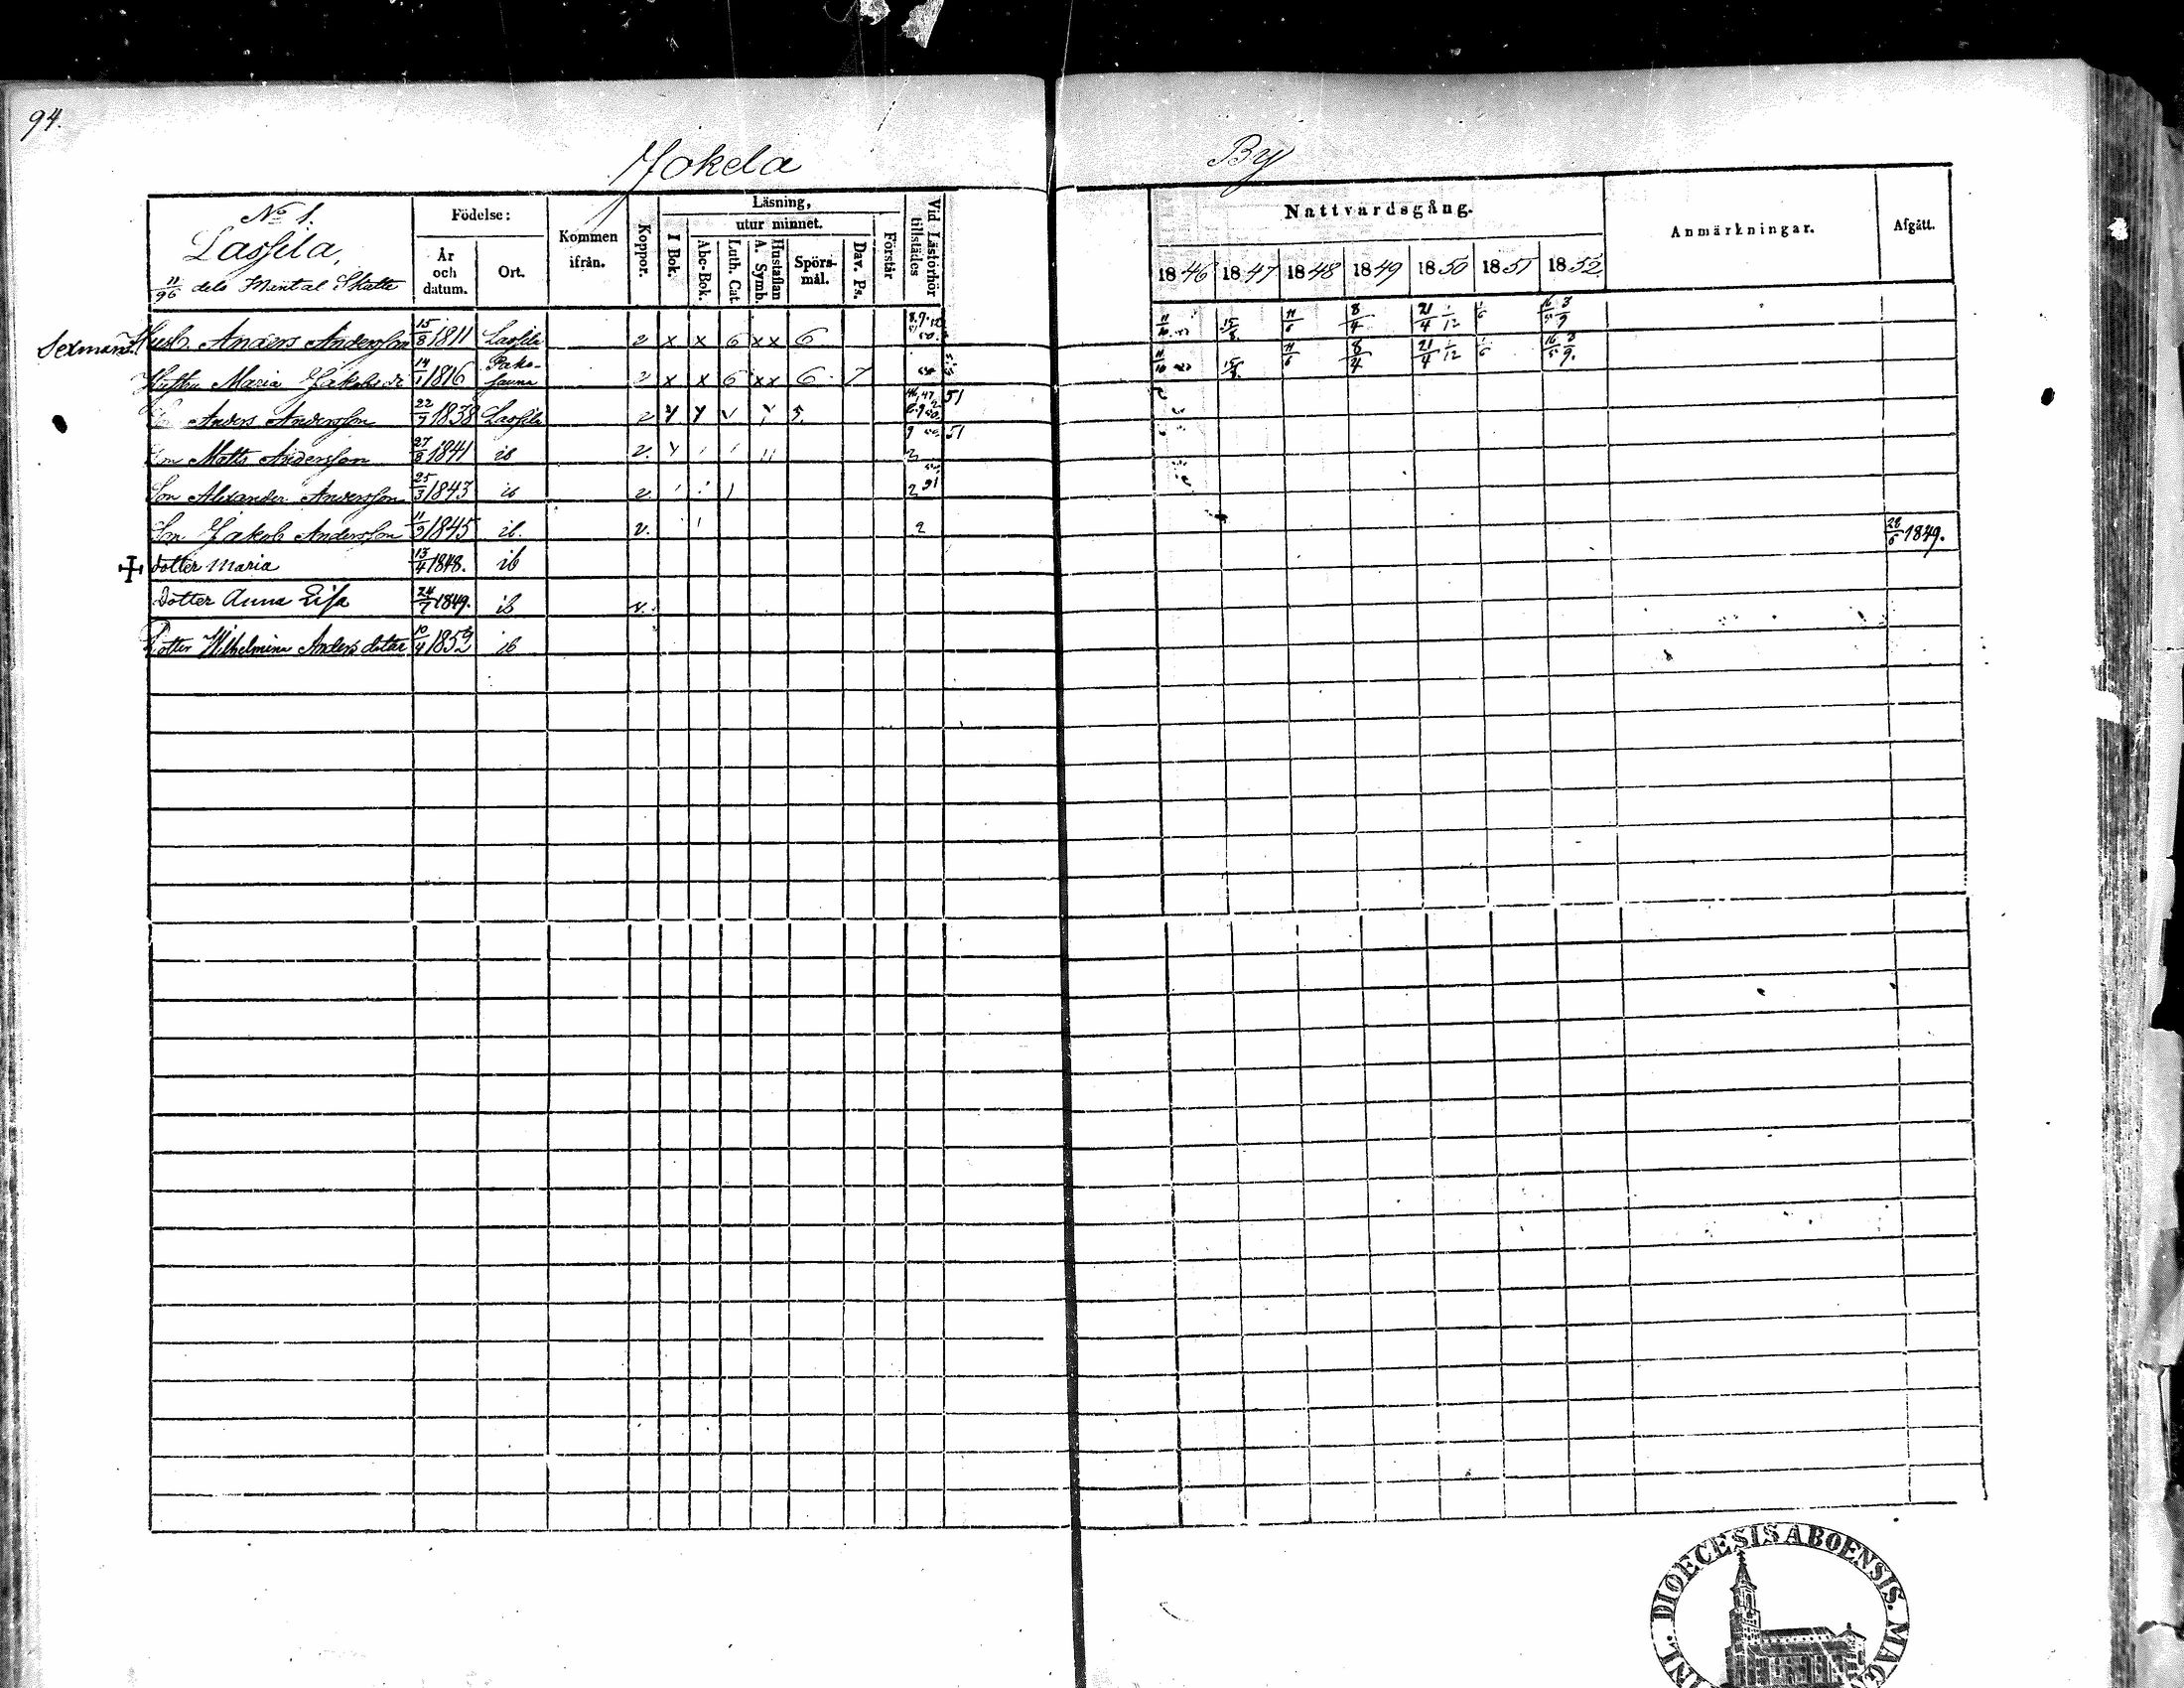 94.
Jokela By
No 1.
Lassila,
11/96 dels Mental Skatte
Födelse:
År och datum.
Ort.
Kommen ifrån.
Koppor.
Läsning,
I Bok.
utur minnet.
Abc-Bok.
Luth. Cat.
A. Symb. Hustaflan
Spörs-mål.
Dav. Ps.
Förstår
Vid Läsförhör tillstädes
Nattvardsgång.
1846 1847 1848 1849 1850 1851 1852.
Anmärkningar.
Afgått.
Sexman Husb. Anders Andersson 15/8 1811 Lassila 2 x x 6 x x 6 11/10 15/8 11/6 8/4 21/4 1/12 16/5 3/9
Hustru Maria Jakobsdr 14/1 1816 2 x x 6 x x 6 7 11/10 11/6 8/4 21/4 1/12 16/5 3/9.
Son Anders Andersson 22/7 1838 Lassila 2 5. 46, 47 51
Son Matts Andersson 27/8 1841 ib 2. 9 51
Son Alexander Andersson 25/3 1843 ib 2 2
Son Jakob Andersson 11/9 1845 ib. v. 2
dotter Maria 13/4 1848. ib 28/5 1849.
dotter Anna Lisa 24/7 1849. ib v.
Dotter Wilhelmina Andersdotter 10/4 1852 ib
DIOECESIS ABOENSIS.